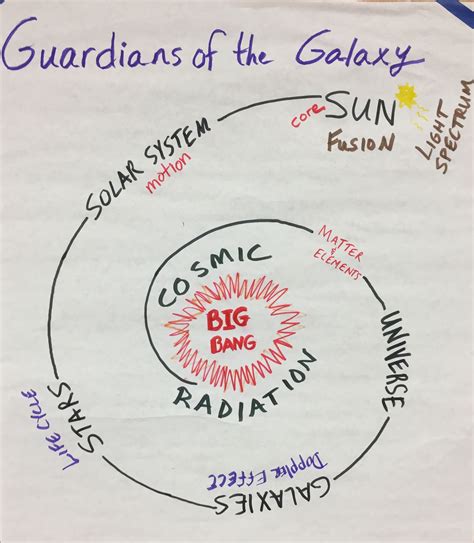 Guardians of the Galaxy
core
SUN
Fusion
LIGHT
SPECTRUM
SOLAR SYSTEM
motion
MATTER
&
ELEMENTS
COSMIC
BIG
BANG
RADIATION
UNIVERSE
LIFE CYCLE
STARS
Doppler Effect
GALAXIES